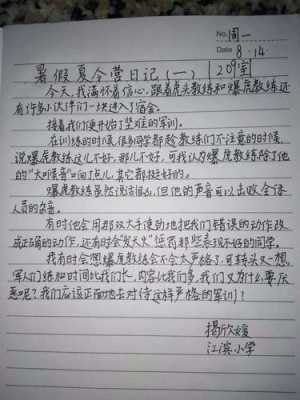 No. 周一
Date 8.14.
209室
暑假夏令营日记(一)
今天,我满怀着信心,跟着虎头教练和爆虎教练还
有许多小伙伴们一块进入了宿舍。
接着我们便开始了坚难的军训。
在训练的时候,很多同学都趁教练们不注意的时候,
说爆虎教练这儿不好,那儿不好,可我认为爆虎教练除了他
的"大叫喉音"凶了点儿,其它都挺好的。
爆虎教练虽然说话很凶,但他的声音可以击败全体
人员的杂音。
有时他会用那双大手使劲地把我们错误的动作改
成正确的动作,还有时会"发大火"惩罚那些表现不好的同学。
我有时会想爆虎教练会不会太严格了,可转头又一想
军人们练的时间比我们长,内容比我们多,我们又为什么要厌
恶呢?我们应该正面地去对待这样严格的军训!
揭欣媛
江滨小学